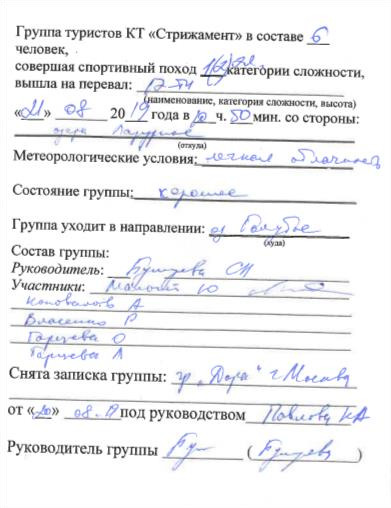 Группа туристов КТ «Стрижамент» в составе 6
человек,
совершая спортивный поход категории сложности,
вышла на перевал:
(наименование, категория сложности, высота)
«21» 08 2019 года в 10 ч. 50 мин. со стороны:
озера Лазурное
(откуда)
Метеорологические условия: легкая облачность
Состояние группы: хорошее
Группа уходит в направлении: оз Голубое
(куда)
Состав группы:
Руководитель:
Участники: Ю
Коновалов А
Власенко Р
Гарцуева О
Гарцуева Л
Снята записка группы: гр „ " г. Москва
от «20» 08.19 под руководством Павлова КА
Руководитель группы ( )